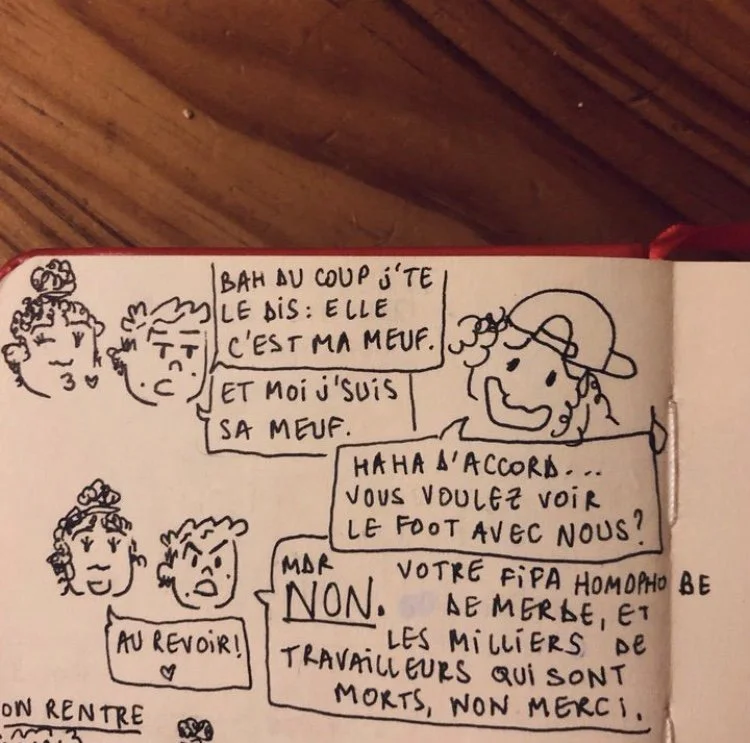 BAH DU COUP J'TE
LE DIS : ELLE
C'EST MA MEUF.
ET MOI J'SUIS
SA MEUF.
HAHA D'ACCORD...
VOUS VOULEZ VOIR
LE FOOT AVEC NOUS?
MDR
NON.
VOTRE FIFA HOMOPHOBE
DE MERDE, ET
LES MILLIERS DE
TRAVAILLEURS QUI SONT
MORTS, NON MERCI.
AU REVOIR!
ON RENTRE